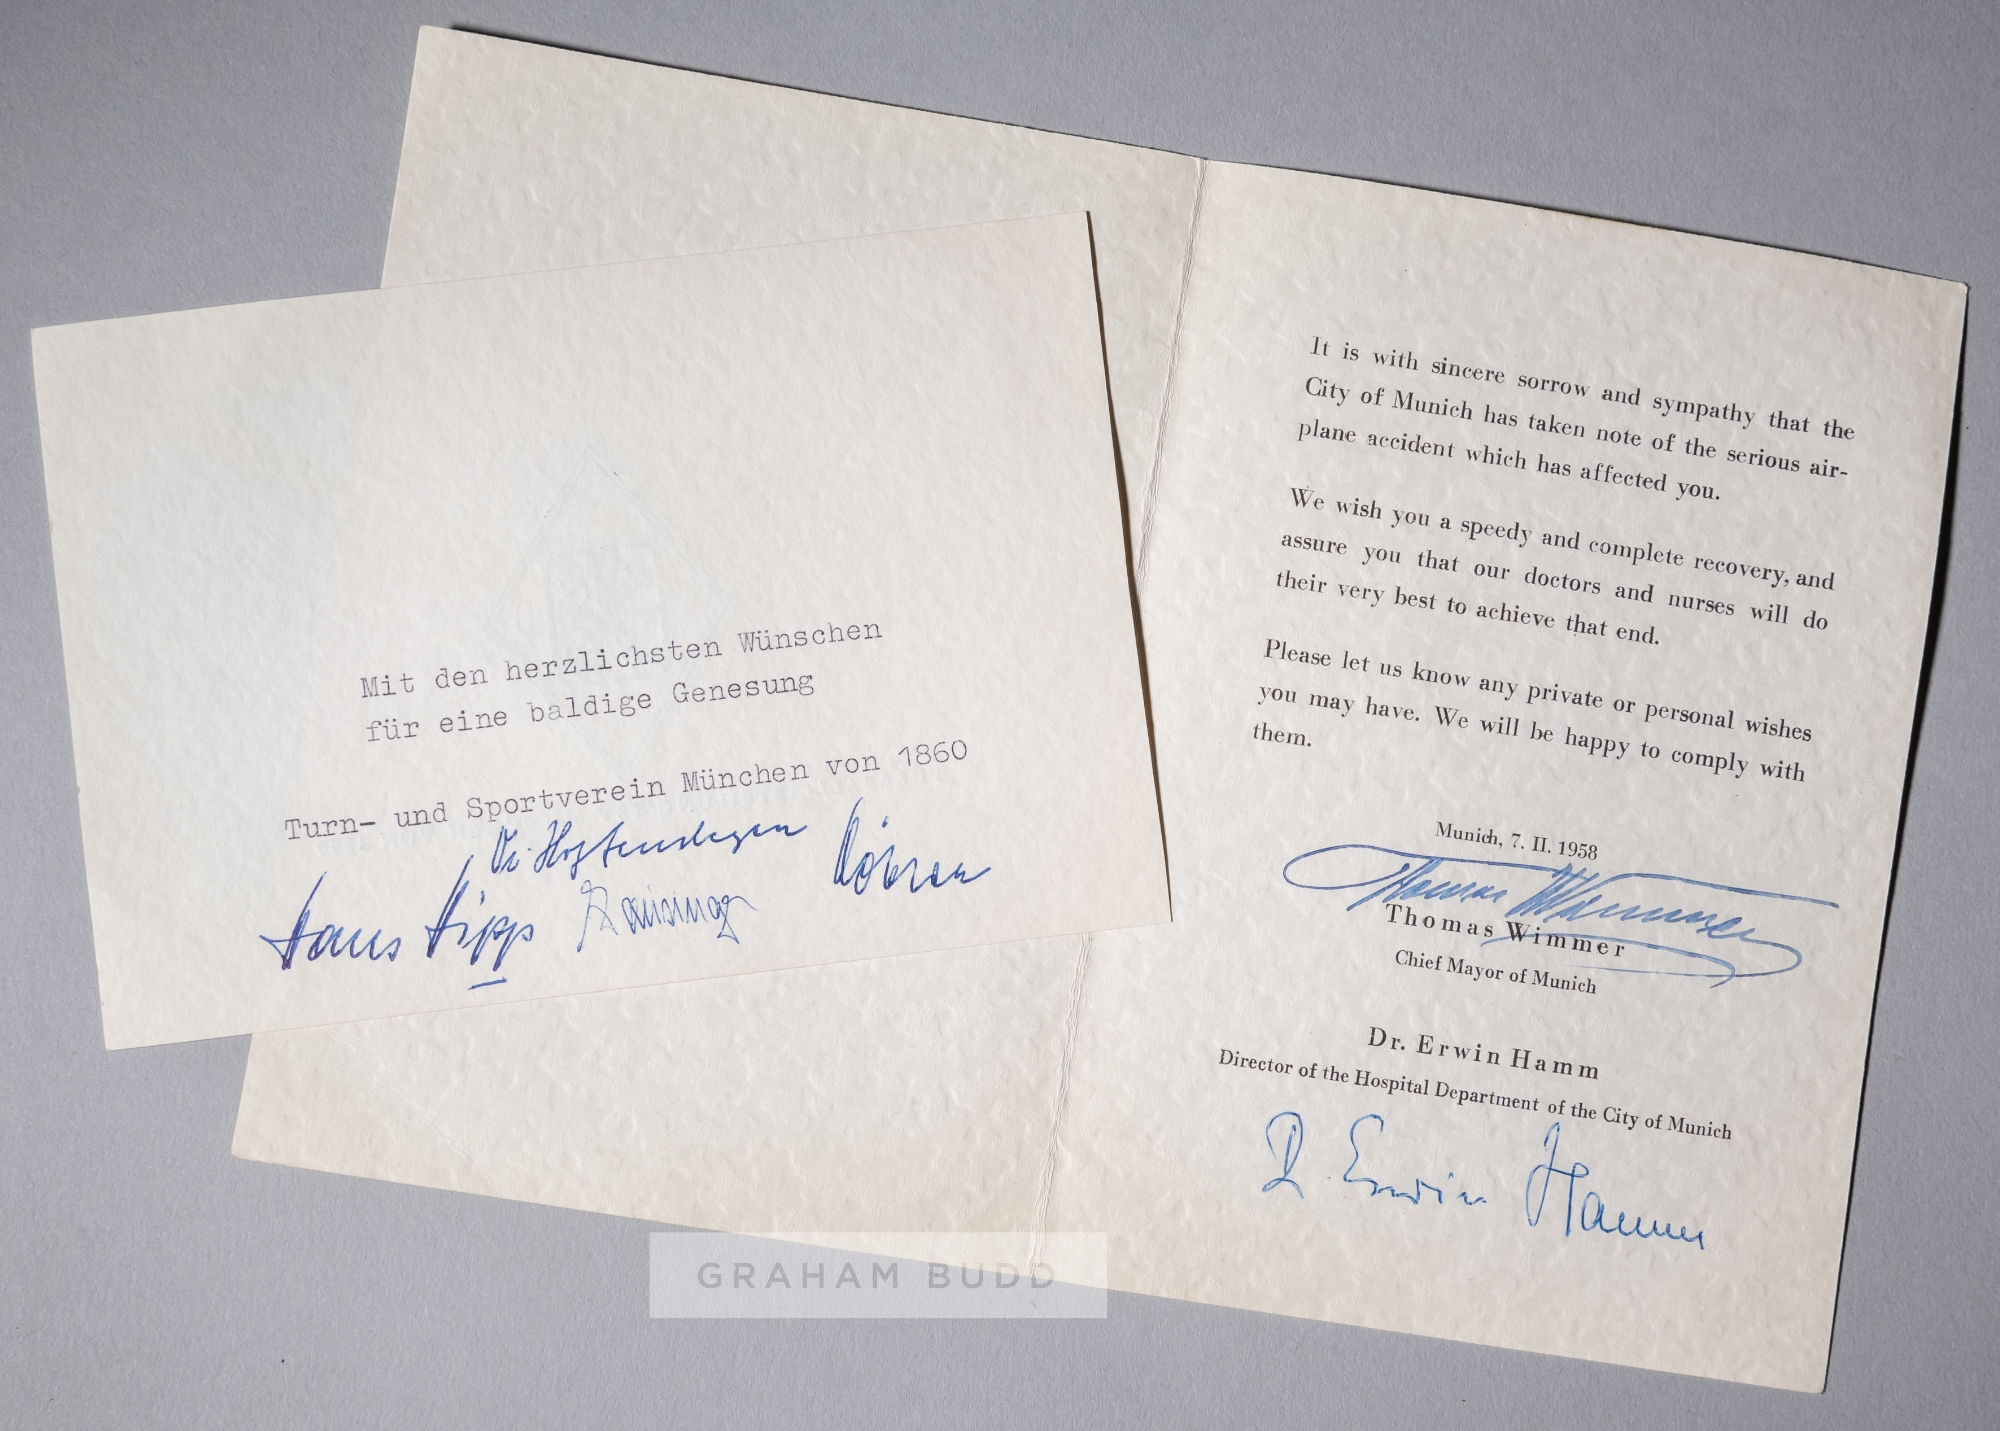 Mit den herzlichsten Wünschen
für eine baldige Genesung
Turn- und Sportverein München von 1860
Hans Sipp
It is with sincere sorrow and sympathy that the
City of Munich has taken note of the serious air-
plane accident which has affected you.
We wish you a speedy and complete recovery, and
assure you that our doctors and nurses will do
their very best to achieve that end.
Please let us know any private or personal wishes
you may have. We will be happy to comply with
them.
Munich, 7. II. 1958
Thomas Wimmer
Thomas Wimmer
Chief Mayor of Munich
Dr. Erwin Hamm
Director of the Hospital Department of the City of Munich
Dr. Erwin Hamm
GRAHAM BUDD